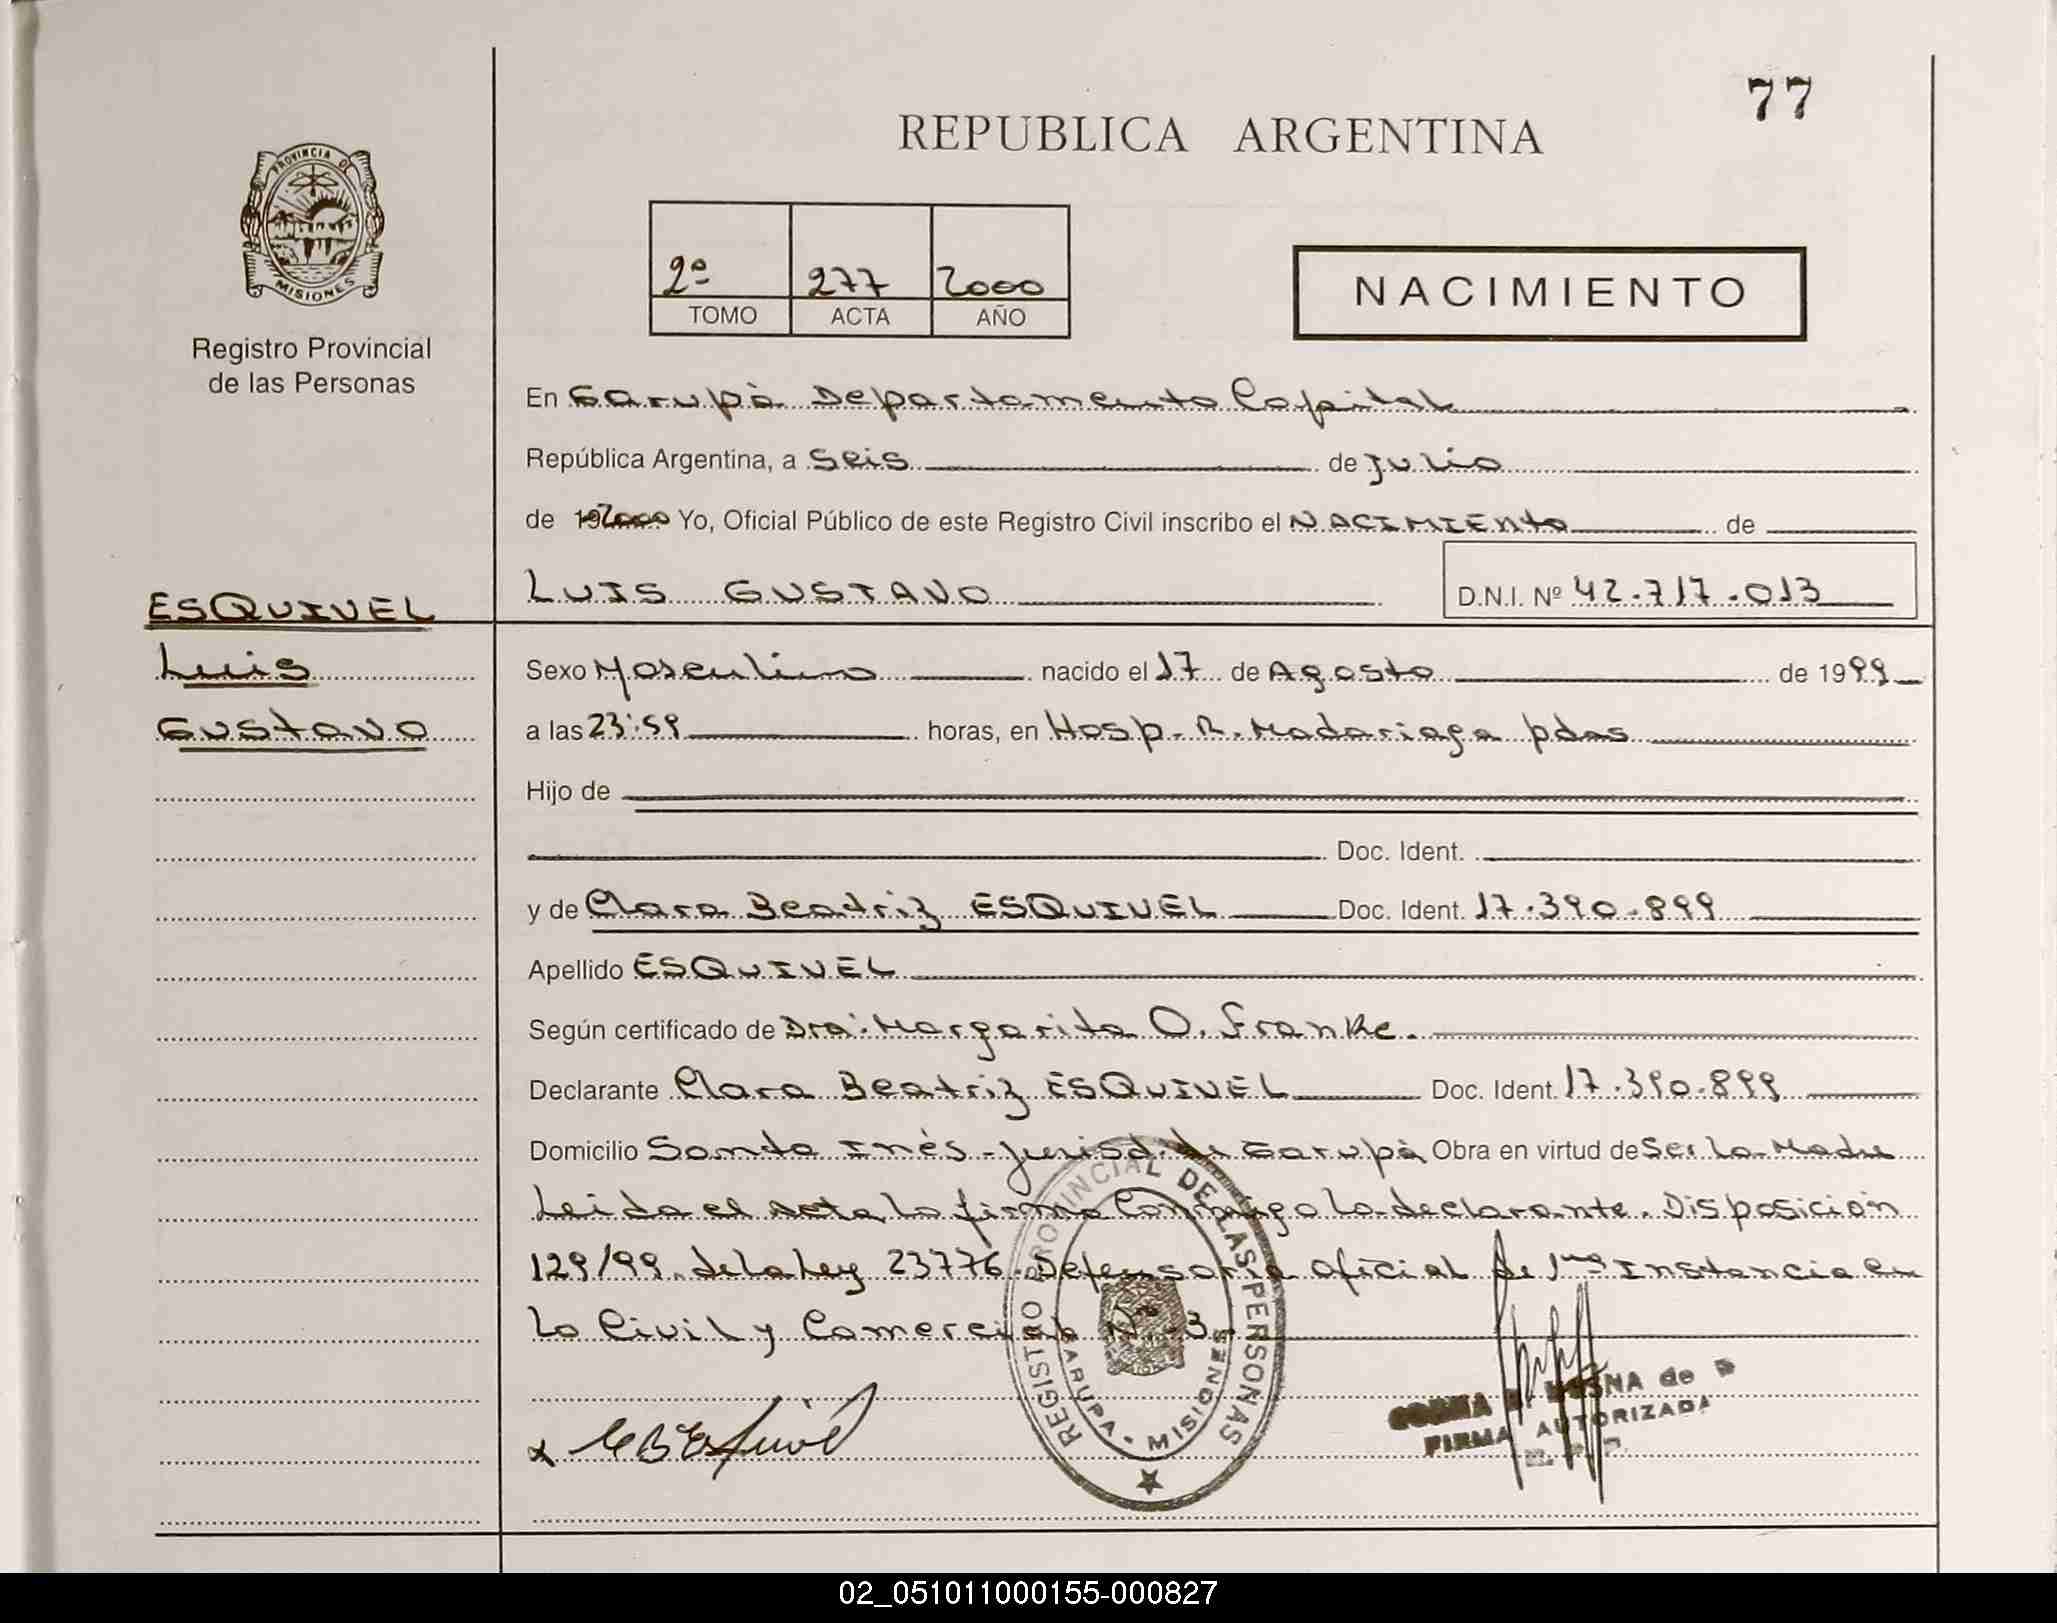 77
REPUBLICA ARGENTINA
PROVINCIA DE
MISIONES
Registro Provincial
de las Personas
2º 277 2000
TOMO ACTA AÑO
NACIMIENTO
En Garupà Departamento Capital
República Argentina, a Seis de Julio
de 19 2000 Yo, Oficial Público de este Registro Civil inscribo el NACIMIENTO de
LUIS GUSTAVO D.N.I. Nº 42.717.013
ESQUIVEL
Luis
Gustavo
Sexo Masculino nacido el 17 de Agosto de 1999
a las 23:59 horas, en Hosp. R. Madariaga pdas
Hijo de
Doc. Ident.
y de Clara Beatriz ESQUIVEL Doc. Ident. 17.390.899
Apellido ESQUIVEL
Según certificado de Dra. Margarita O. Franke.
Declarante Clara Beatriz ESQUIVEL Doc. Ident. 17.390.899
Domicilio Santa Inés - Jurisd. de Garupà Obra en virtud de Ser la Madre
Leida el acta la firma Conmigo la declarante. Disposición
129/99 de la Ley 23776. Defensoria oficial de 1ra Instancia en
lo Civil y Comercial Nº 3
REGISTRO PROVINCIAL DE LAS PERSONAS
GARUPA - MISIONES
FIRMA AUTORIZADA
02_051011000155-000827